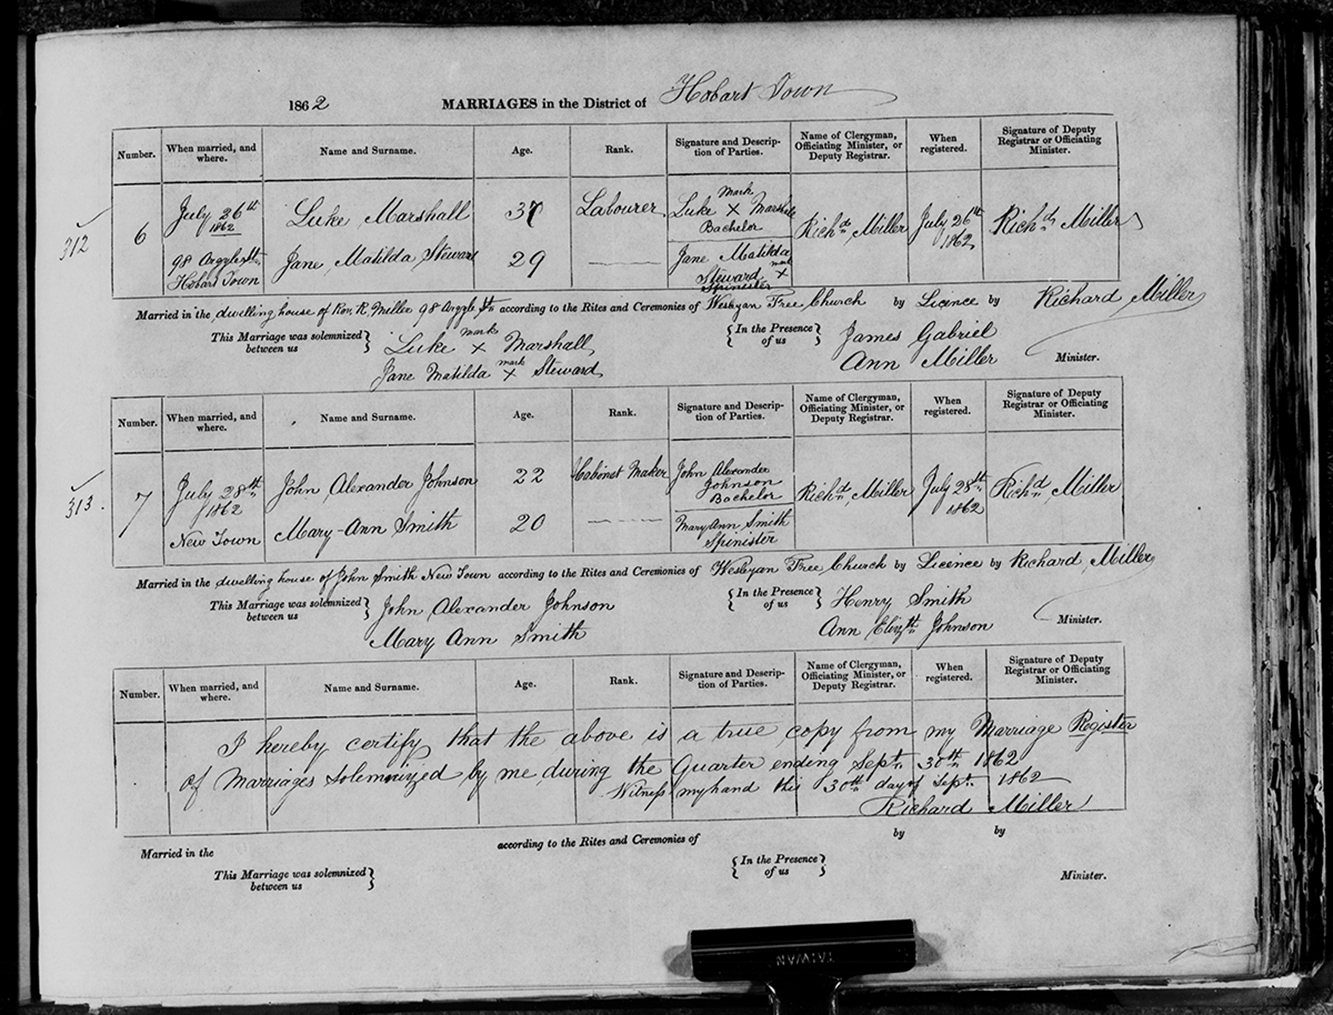 1862 MARRIAGES in the District of Hobart Town
Number. When married, and where. Name and Surname. Age. Rank. Signature and Description of Parties. Name of Clergyman, Officiating Minister, or Deputy Registrar. When registered. Signature of Deputy Registrar or Officiating Minister.
312
6
July 26th 1862
98 Argyle St. Hobart Town
Luke Marshall 37 Labourer
Jane Matilda Steward 29
Luke X Marshall mark Bachelor
Jane Matilda Steward mark X Spinister
Richd Miller
July 26th 1862
Richd Miller
Married in the dwelling house of Rev. R. Miller 98 Argyle St according to the Rites and Ceremonies of Wesleyan Free Church by Licence by Richard Miller
This Marriage was solemnized between us
Luke mark X Marshall
Jane Matilda mark X Steward
In the Presence of us
James Gabriel
Ann Miller
Minister.
Number. When married, and where. Name and Surname. Age. Rank. Signature and Description of Parties. Name of Clergyman, Officiating Minister, or Deputy Registrar. When registered. Signature of Deputy Registrar or Officiating Minister.
313.
7
July 28th 1862
New Town
John Alexander Johnson 22 Cabinet Maker
Mary-Ann Smith 20
John Alexander Johnson Bachelor
Mary Ann Smith Spinister
Richd Miller
July 28th 1862
Richd Miller
Married in the dwelling house of John Smith New Town according to the Rites and Ceremonies of Wesleyan Free Church by Licence by Richard Miller
This Marriage was solemnized between us
John Alexander Johnson
Mary Ann Smith
In the Presence of us
Henry Smith
Ann Elizth Johnson
Minister.
Number. When married, and where. Name and Surname. Age. Rank. Signature and Description of Parties. Name of Clergyman, Officiating Minister, or Deputy Registrar. When registered. Signature of Deputy Registrar or Officiating Minister.
I hereby certify that the above is a true copy from my Marriage Register
of Marriages solemnized by me during the Quarter ending Septr 30th 1862
Witness my hand this 30th day of Septr 1862
Richard Miller
Married in the according to the Rites and Ceremonies of by by
This Marriage was solemnized between us
In the Presence of us
Minister.
TAIWAN